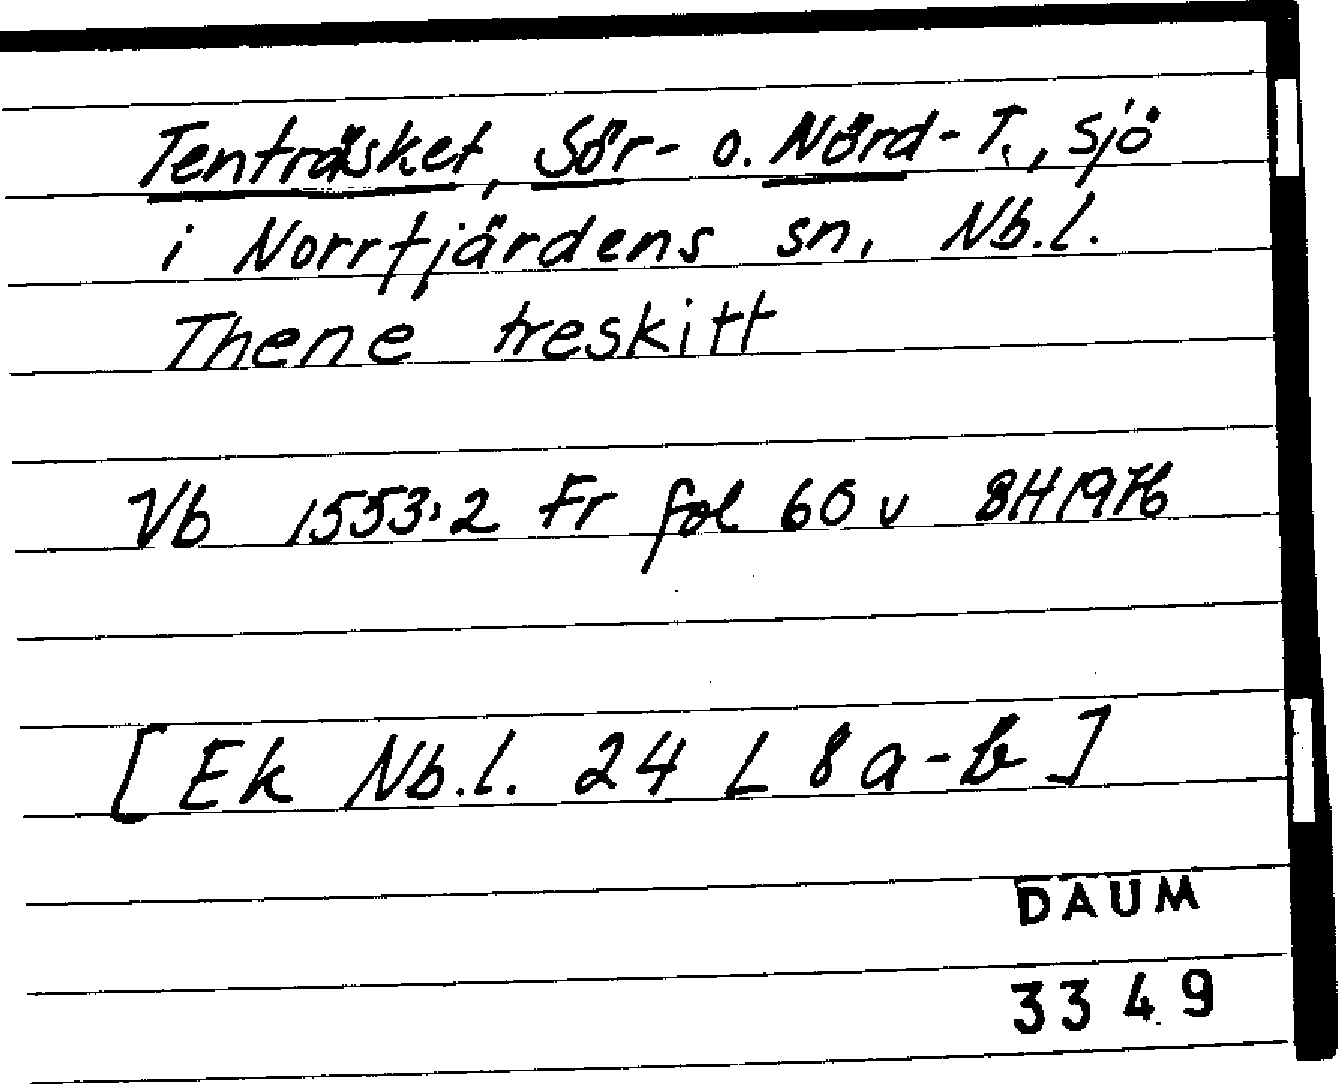 Tenträsket, Sör- o. Nörd-T., sjö
i Norrfjärdens sn, Nb.l.
Thene treskitt
Vb 1553:2 Fr fol 60 v BH 1976
[Ek Nb.l. 24 L 8 a-b]
DAUM
3349